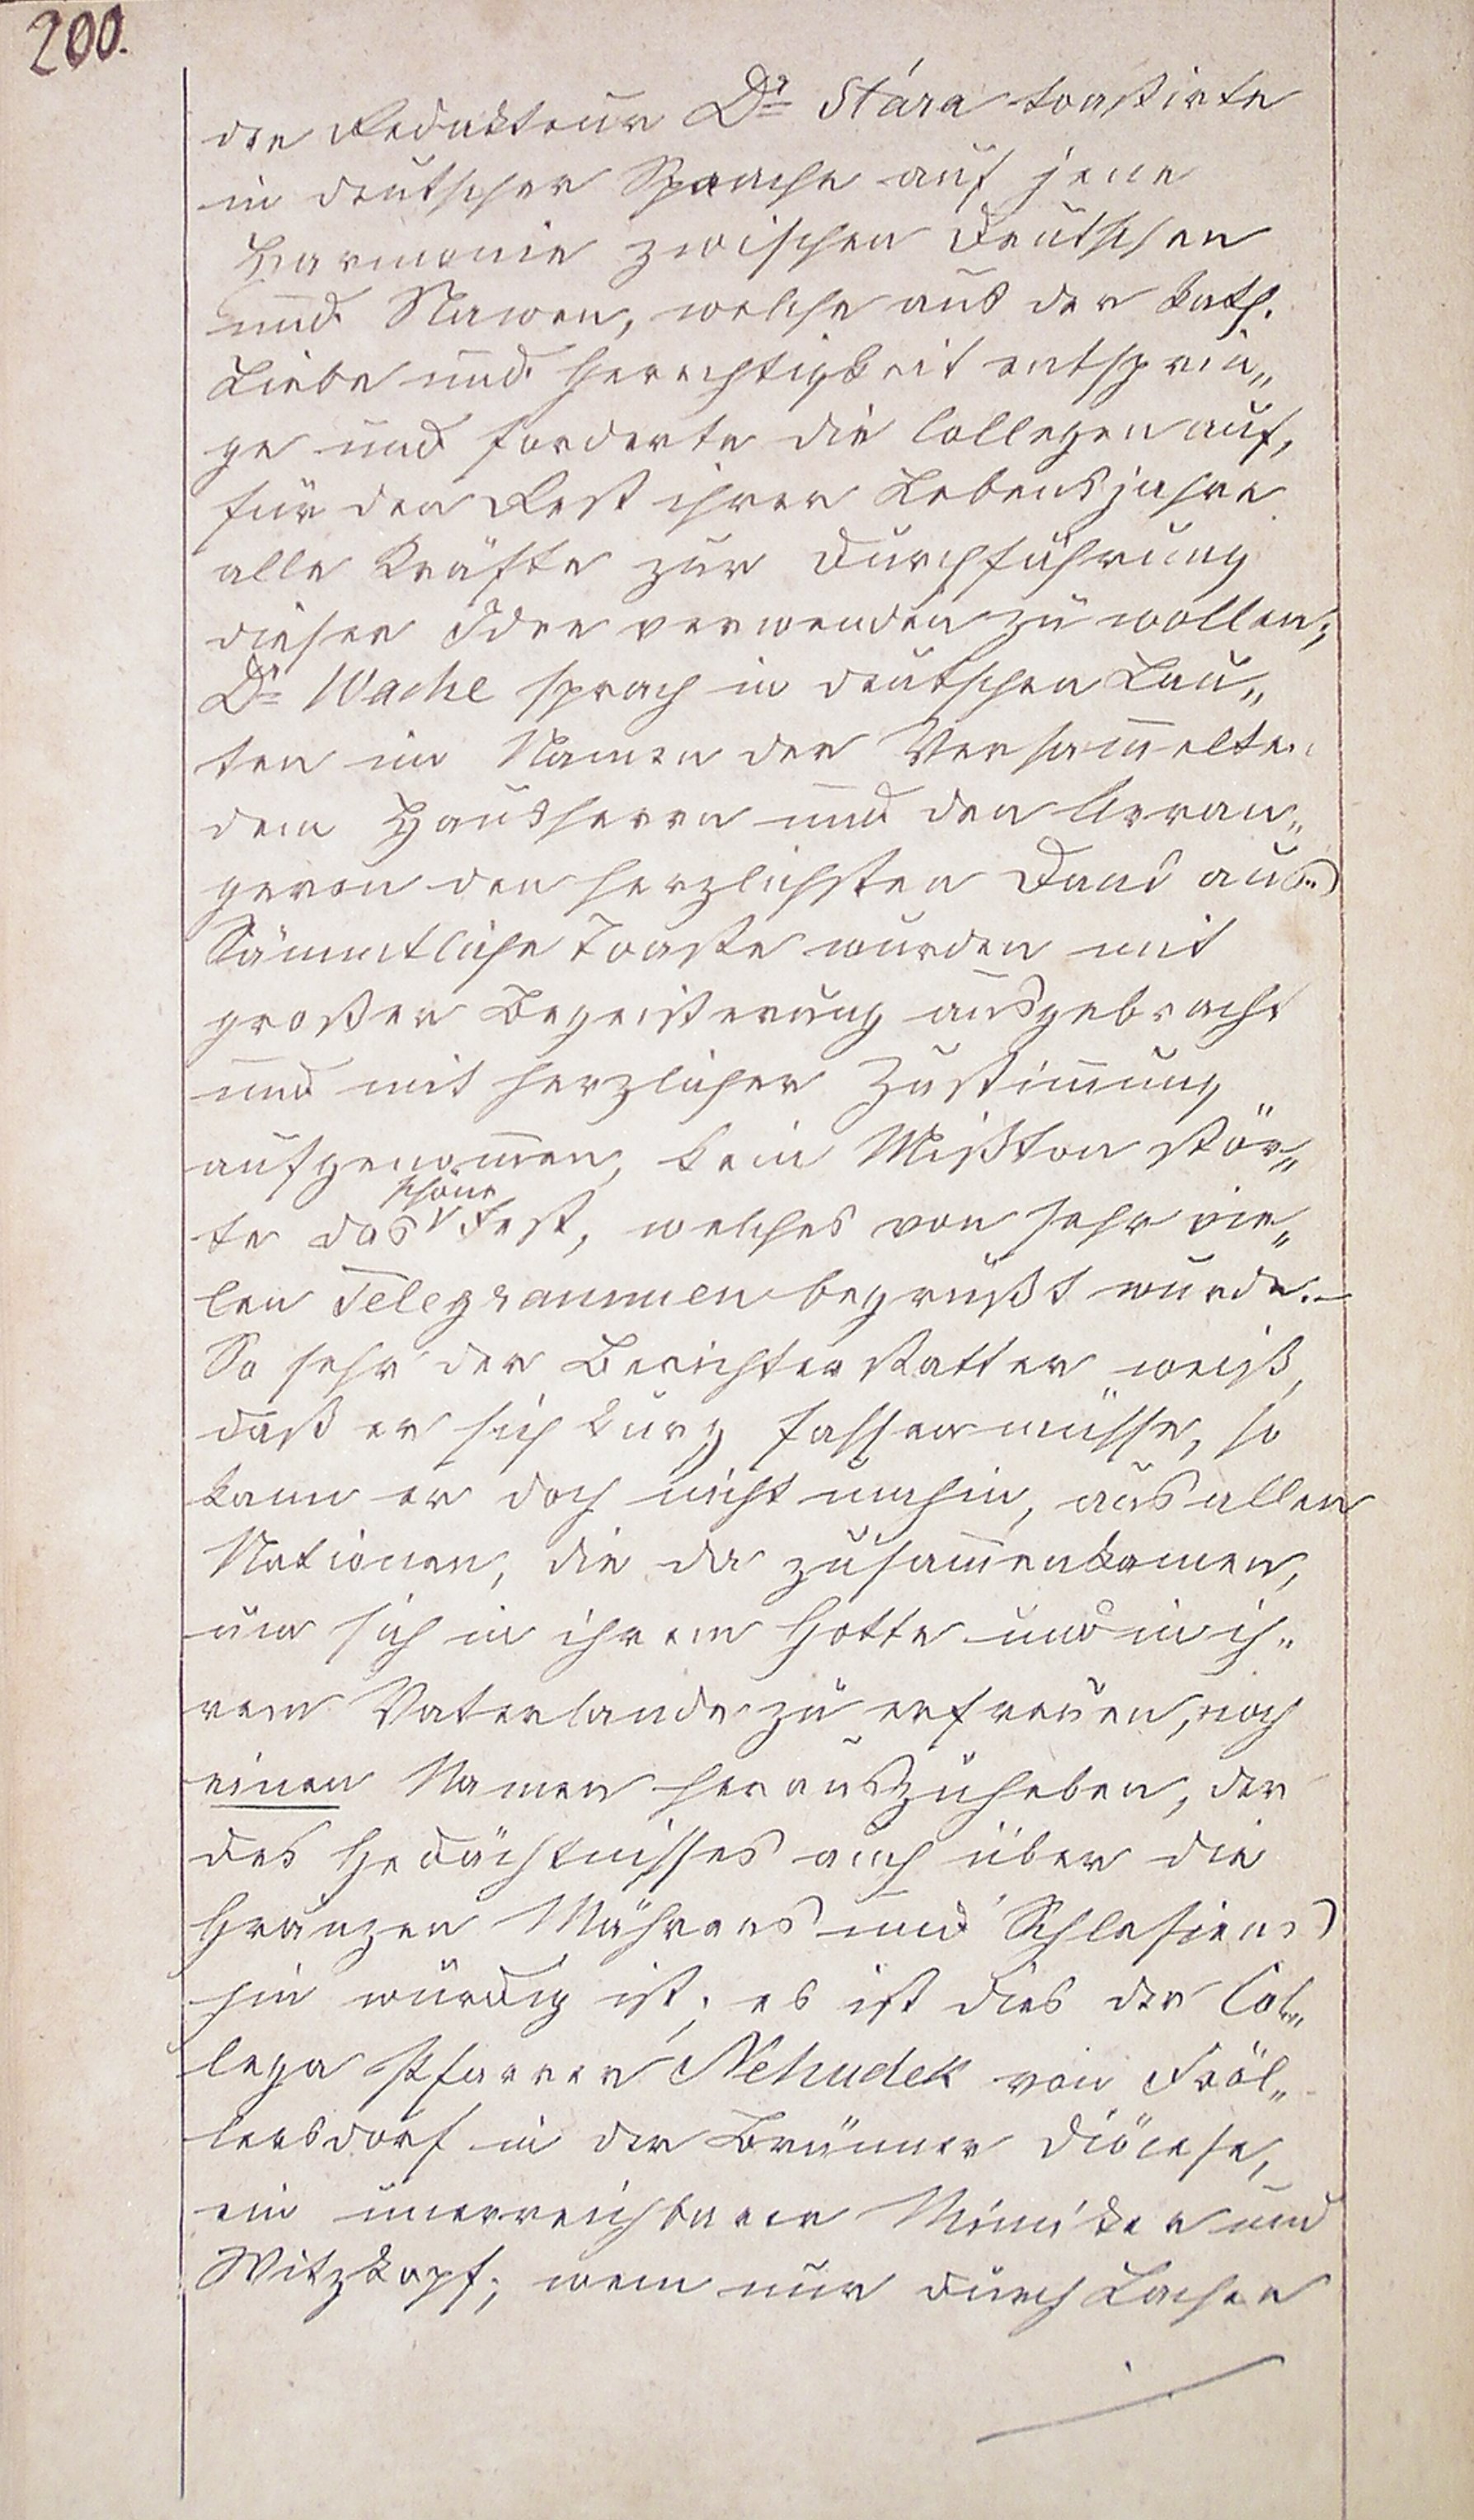 200.
der Redakteur Dr Stára toastirte
in deutscher Sprache auf jene
Harmonie zwischen Deutschen
und Slawen, welche aus der kath.
Liebe und Gerechtigkeit entsprin„
ge und forderte die Collegen auf,
für den Rest ihrer Lebensjahre
alle Kräfte zur Durchführung
dieser Idee verwenden zu wollen;
Dr Wache sprach in deutschen Lau„
ten im Namen der Versam̅elten
dem Hausherrn und den Arran„
geren den herzlichsten Dank aus.
Sämmtliche Toaste wurden mit
großer Begeisterung ausgebracht
und mit herzlicher Zustim̅ung
aufgenom̅en, kein Mißton stör„
te das schöne Fest, welches von sehr vie„
len Telegrammen begrüßt wurde.–
So sehr der Berichterstatter weiß,
daß er sich kurz fassen müsse, so
kann er doch nicht umhin, aus allen
Nationen, die da zusam̅enkamen,
um sich in ihrem Gotte und in ih„
rem Vaterlande zu erfreuen, noch
einen Namen herauszuheben, der
des Gedächtnisses auch über die
Gränzen Mährens und Schlesiens
hin würdig ist; es ist dies der Col„
lega Pfarrer Nehudek von Fröl„
lersdorf in der Brünner Diöcese,
ein unerreichbarer Mimiker und
Witzkopf; wem nur durch Lachen